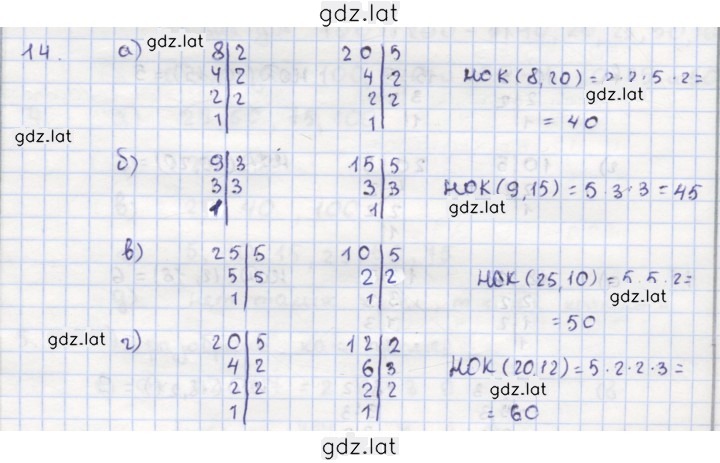 gdz.lat
14. а) gdz.lat 8|2 20|5
4|2 4|2 НОК(8,20)=2·2·5·2=
2|2 2|2 gdz.lat
1| 1| = 40
gdz.lat
б) 9|3 15|5
3|3 3|3 НОК(9,15)=5·3·3=45
1| 1| gdz.lat
в) 25|5 10|5
5|5 2|2 НОК(25,10)=5·5·2=
1| 1| gdz.lat
=50
gdz.lat г) 20|5 12|2
4|2 6|3 НОК(20,12)=5·2·2·3=
2|2 2|2 gdz.lat
1| 1| = 60
gdz.lat